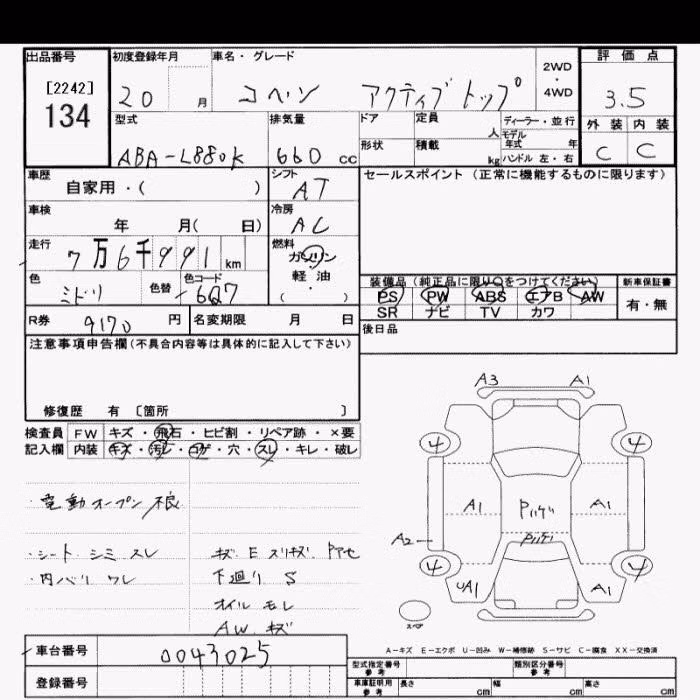 出品番号
[2242]
134
初度登録年月
20 月
車名・グレード
コペン アクティブトップ
2WD
・
4WD
評価点
3.5
外装 内装
C C
型式
ABA-L880K
排気量
660 cc
ドア
定員
人
ディーラー・並行
モデル
年式 年
形状
積載
kg
ハンドル 左・右
車歴
自家用・( )
シフト
AT
セールスポイント(正常に機能するものに限ります)
車検
年 月( 日)
冷房
AC
走行
7万6千991km
燃料
ガソリン
軽油
( )
色
ミドリ
色替
色コード
G27
装備品(純正品に限り○をつけてください)
PS PW ABS エアB AW
SR ナビ TV カワ
新車保証書
有・無
R券 9170 円
名変期限 月 日
後日品
注意事項申告欄(不具合内容等は具体的に記入して下さい)
修復歴 有 〔箇所 〕
検査員 FW キズ・飛石・ヒビ割・リペア跡・×要
記入欄 内装 キズ・汚レ・コゲ・穴・スレ・キレ・破レ
・電動オープン不良
・シート シミ スレ
・内バリ ワレ
キズ E スリキズ
下廻り S
オイル モレ
AW キズ
A3 A1
4 4
A1 A1
A2
4 4
UA1 A1
スペア
A-キズ E-エクボ U-凹み W-補修跡 S-サビ C-腐食 XX-交換済
車台番号 0043025
登録番号
型式指定番号
参考
類別区分番号
参考
車庫証明用
参考
長さ cm
幅 cm
高さ cm